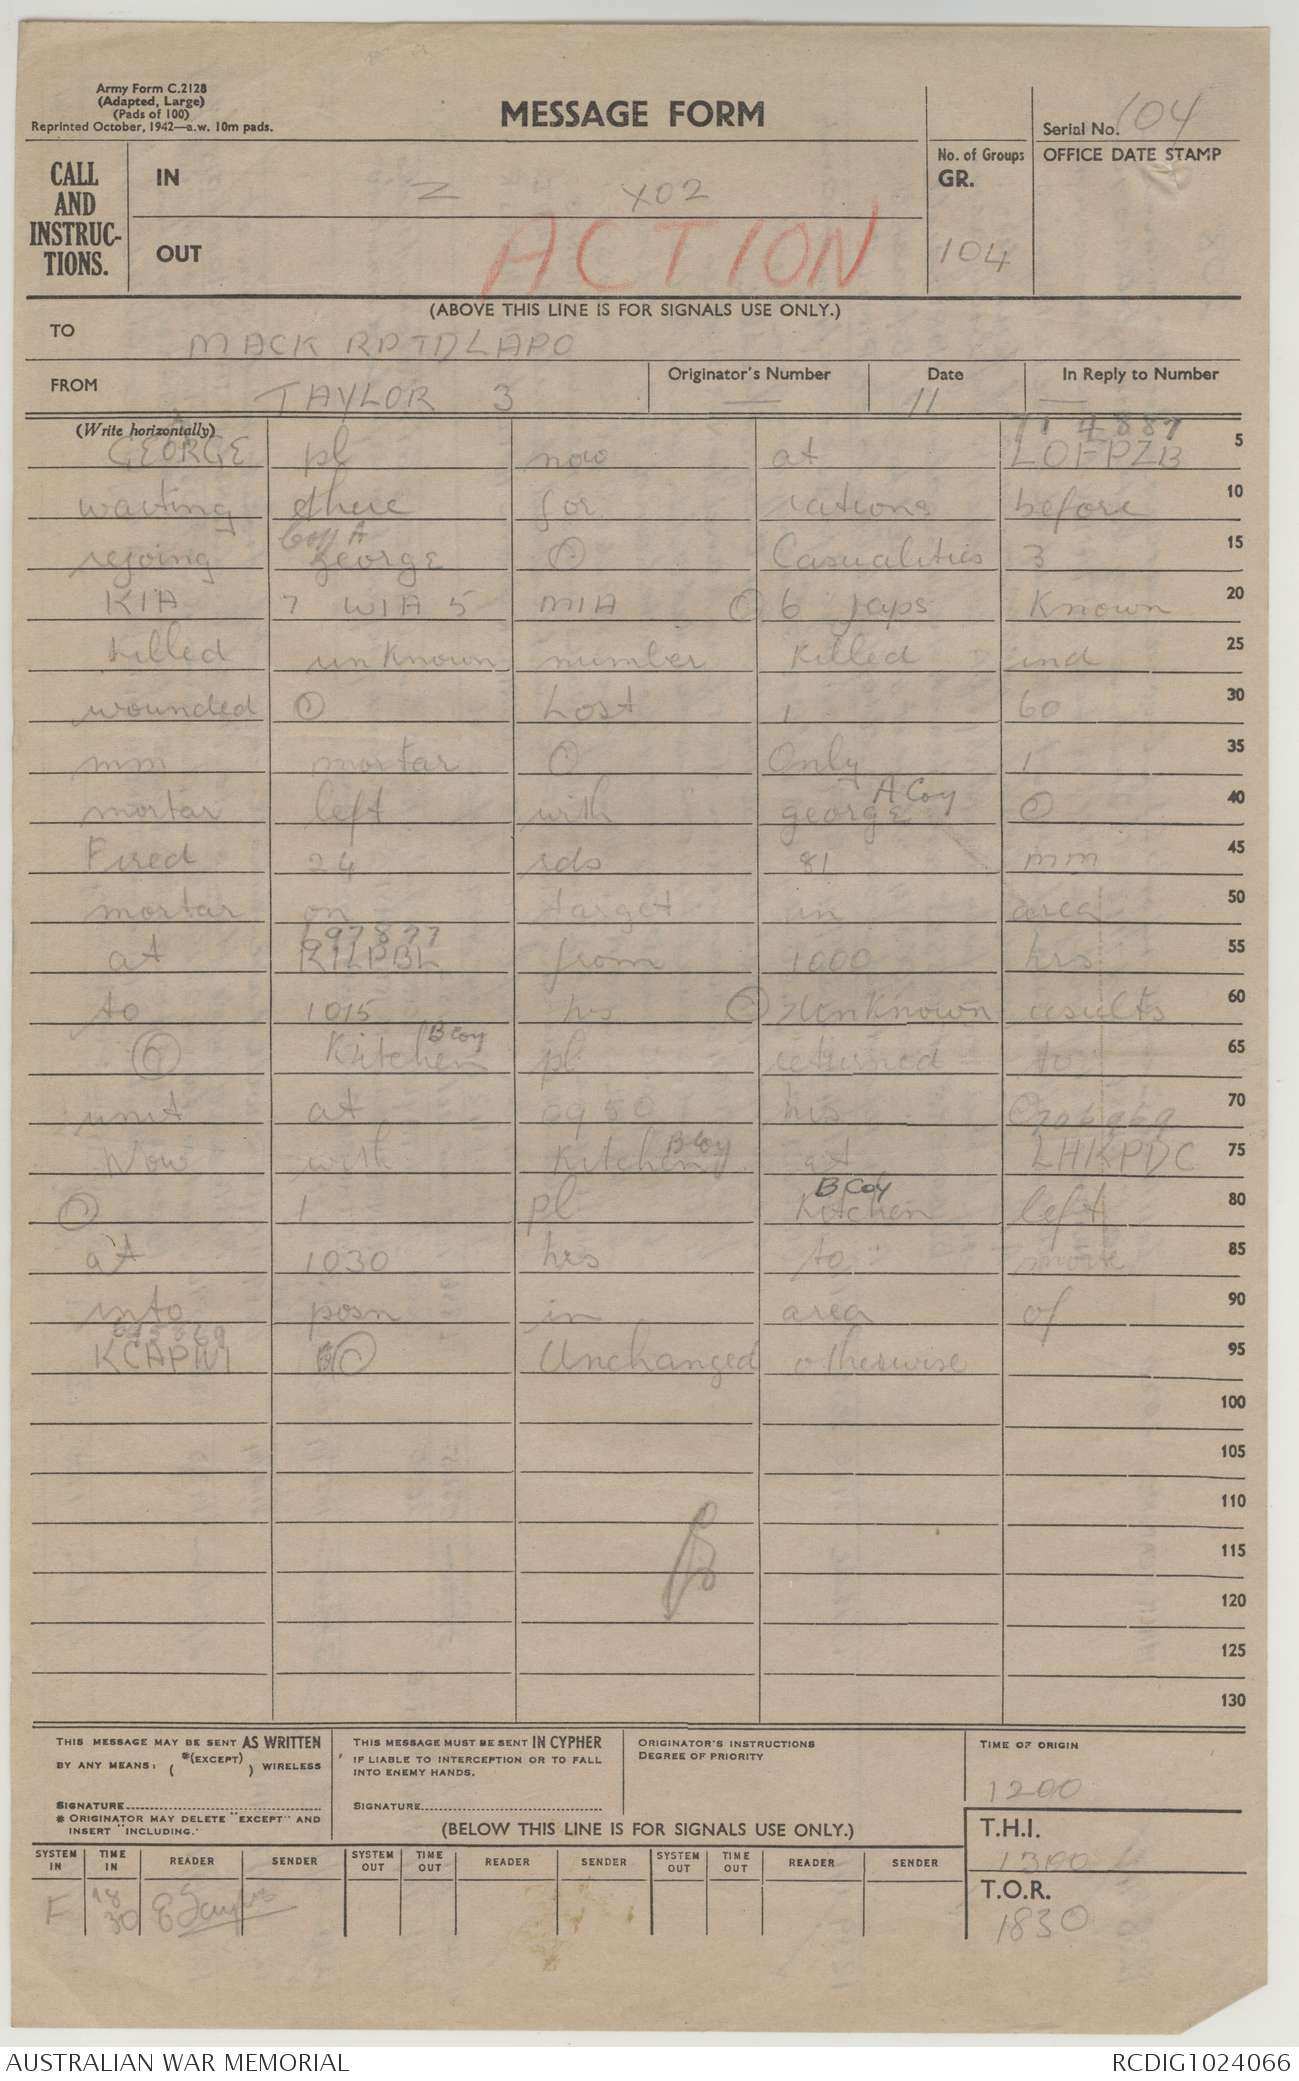 Army Form C.2128
(Adapted, Large)
(Pads of 100)
Reprinted October, 1942—a.w. 10m pads.
MESSAGE FORM
Serial No. 104
CALL AND INSTRUC-TIONS.
IN Z X02
OUT ACTION
No. of Groups
GR.
104
OFFICE DATE STAMP
(ABOVE THIS LINE IS FOR SIGNALS USE ONLY.)
TO MACK RPTDLAPO
FROM TAYLOR 3
Originator's Number —
Date 11
In Reply to Number —
(Write horizontally)
714887
GEORGE pl now at LOFPZB 5
waiting there for rations before 10
Coy A
rejoing george Casualities 3 15
KIA 7 WIA 5 MIA 6 japs Known 20
killed unKnown number killed and 25
wounded Lost 1 60 30
mm mortar Only 1 35
A Coy
mortar left with george 40
Fired 24 rds 81 mm 45
mortar on target in area 50
697877
at KILPBL from 1000 hrs 55
to 1015 hrs UnKnown results 60
B Coy
Kitchen pl returned to 65
unit at 0950 hrs 706969 70
B Coy
Now with Kitchen at LHKPDC 75
B Coy
1 pl Kitchen left 80
at 1030 hrs to move 85
into posn in area of 90
KCAPNI Unchanged otherwise 95
100
105
110
115
120
125
130
THIS MESSAGE MAY BE SENT AS WRITTEN
BY ANY MEANS: *(EXCEPT) ( ) WIRELESS
SIGNATURE
* ORIGINATOR MAY DELETE "EXCEPT" AND
INSERT "INCLUDING."
THIS MESSAGE MUST BE SENT IN CYPHER
IF LIABLE TO INTERCEPTION OR TO FALL
INTO ENEMY HANDS.
SIGNATURE
ORIGINATOR'S INSTRUCTIONS
DEGREE OF PRIORITY
TIME OF ORIGIN
1200
(BELOW THIS LINE IS FOR SIGNALS USE ONLY.)
T.H.I.
1300
T.O.R.
1830
SYSTEM IN TIME IN READER SENDER SYSTEM OUT TIME OUT READER SENDER SYSTEM OUT TIME OUT READER SENDER
F 18 30
AUSTRALIAN WAR MEMORIAL
RCDIG1024066